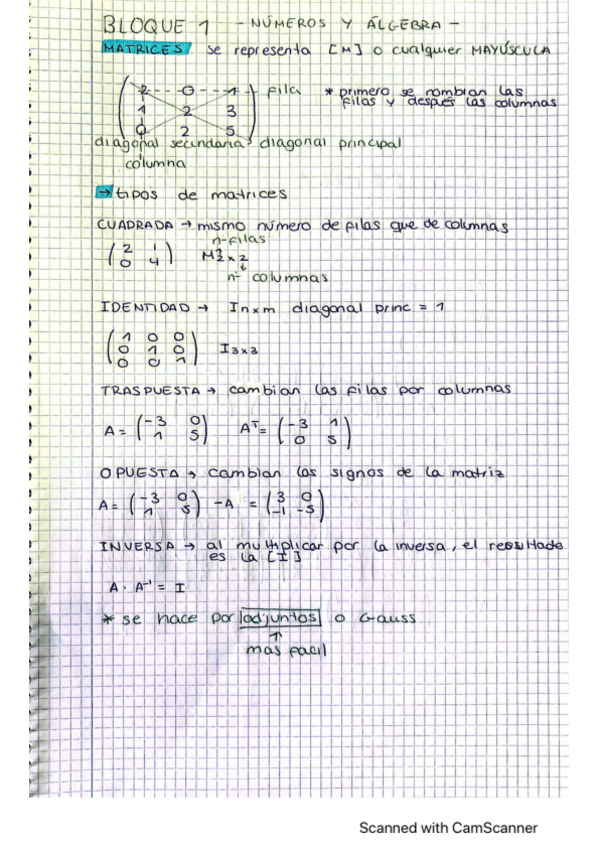 BLOQUE 1 - NÚMEROS Y ÁLGEBRA -
MATRICES se representa [M] o cualquier MAYÚSCULA
2 0 1 fila * primero se nombran las
filas y despues las columnas
1 2 3
0 2 5
diagonal secundaria diagonal principal
columna
→ tipos de matrices
CUADRADA → mismo número de filas que de columnas
n-filas
( 2 1 ) M2x2
( 0 4 )
nº columnas
IDENTIDAD → Inxm diagonal princ = 1
( 1 0 0 )
( 0 1 0 ) I3x3
( 0 0 1 )
TRASPUESTA → cambian las filas por columnas
A = ( -3 0 ) Aᵀ = ( -3 1 )
( 1 5 ) ( 0 5 )
OPUESTA → cambian los signos de la matriz
A = ( -3 0 ) -A = ( 3 0 )
( 1 5 ) ( -1 -5 )
INVERSA → al multiplicar por la inversa, el resultado
es la [I]
A · A⁻¹ = I
* se hace por adjuntos o Gauss
↑
mas facil
Scanned with CamScanner